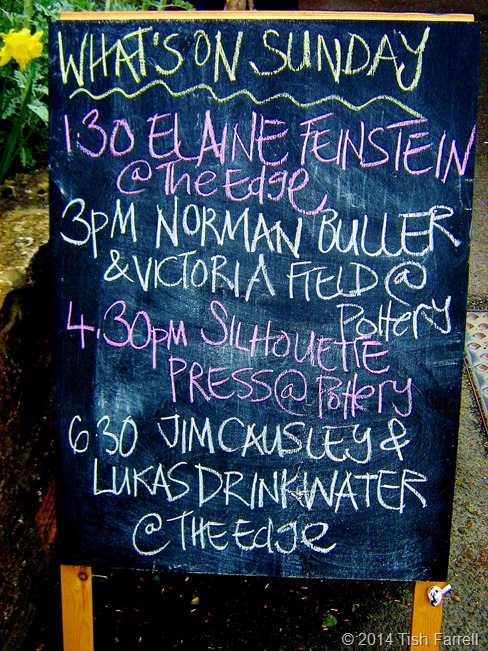 WHAT'S ON SUNDAY
1.30 ELAINE FEINSTEIN
@ThE Edge
3pM NORMAN BULLER
& VICTORIA FIELD @
Pottery
4.30pm SILHOUETTE
PRESS @ Pottery
6.30 JIM CAUSLEY &
LUKAS DRINKWATER
@ THE Edge
© 2014 Tish Farrell